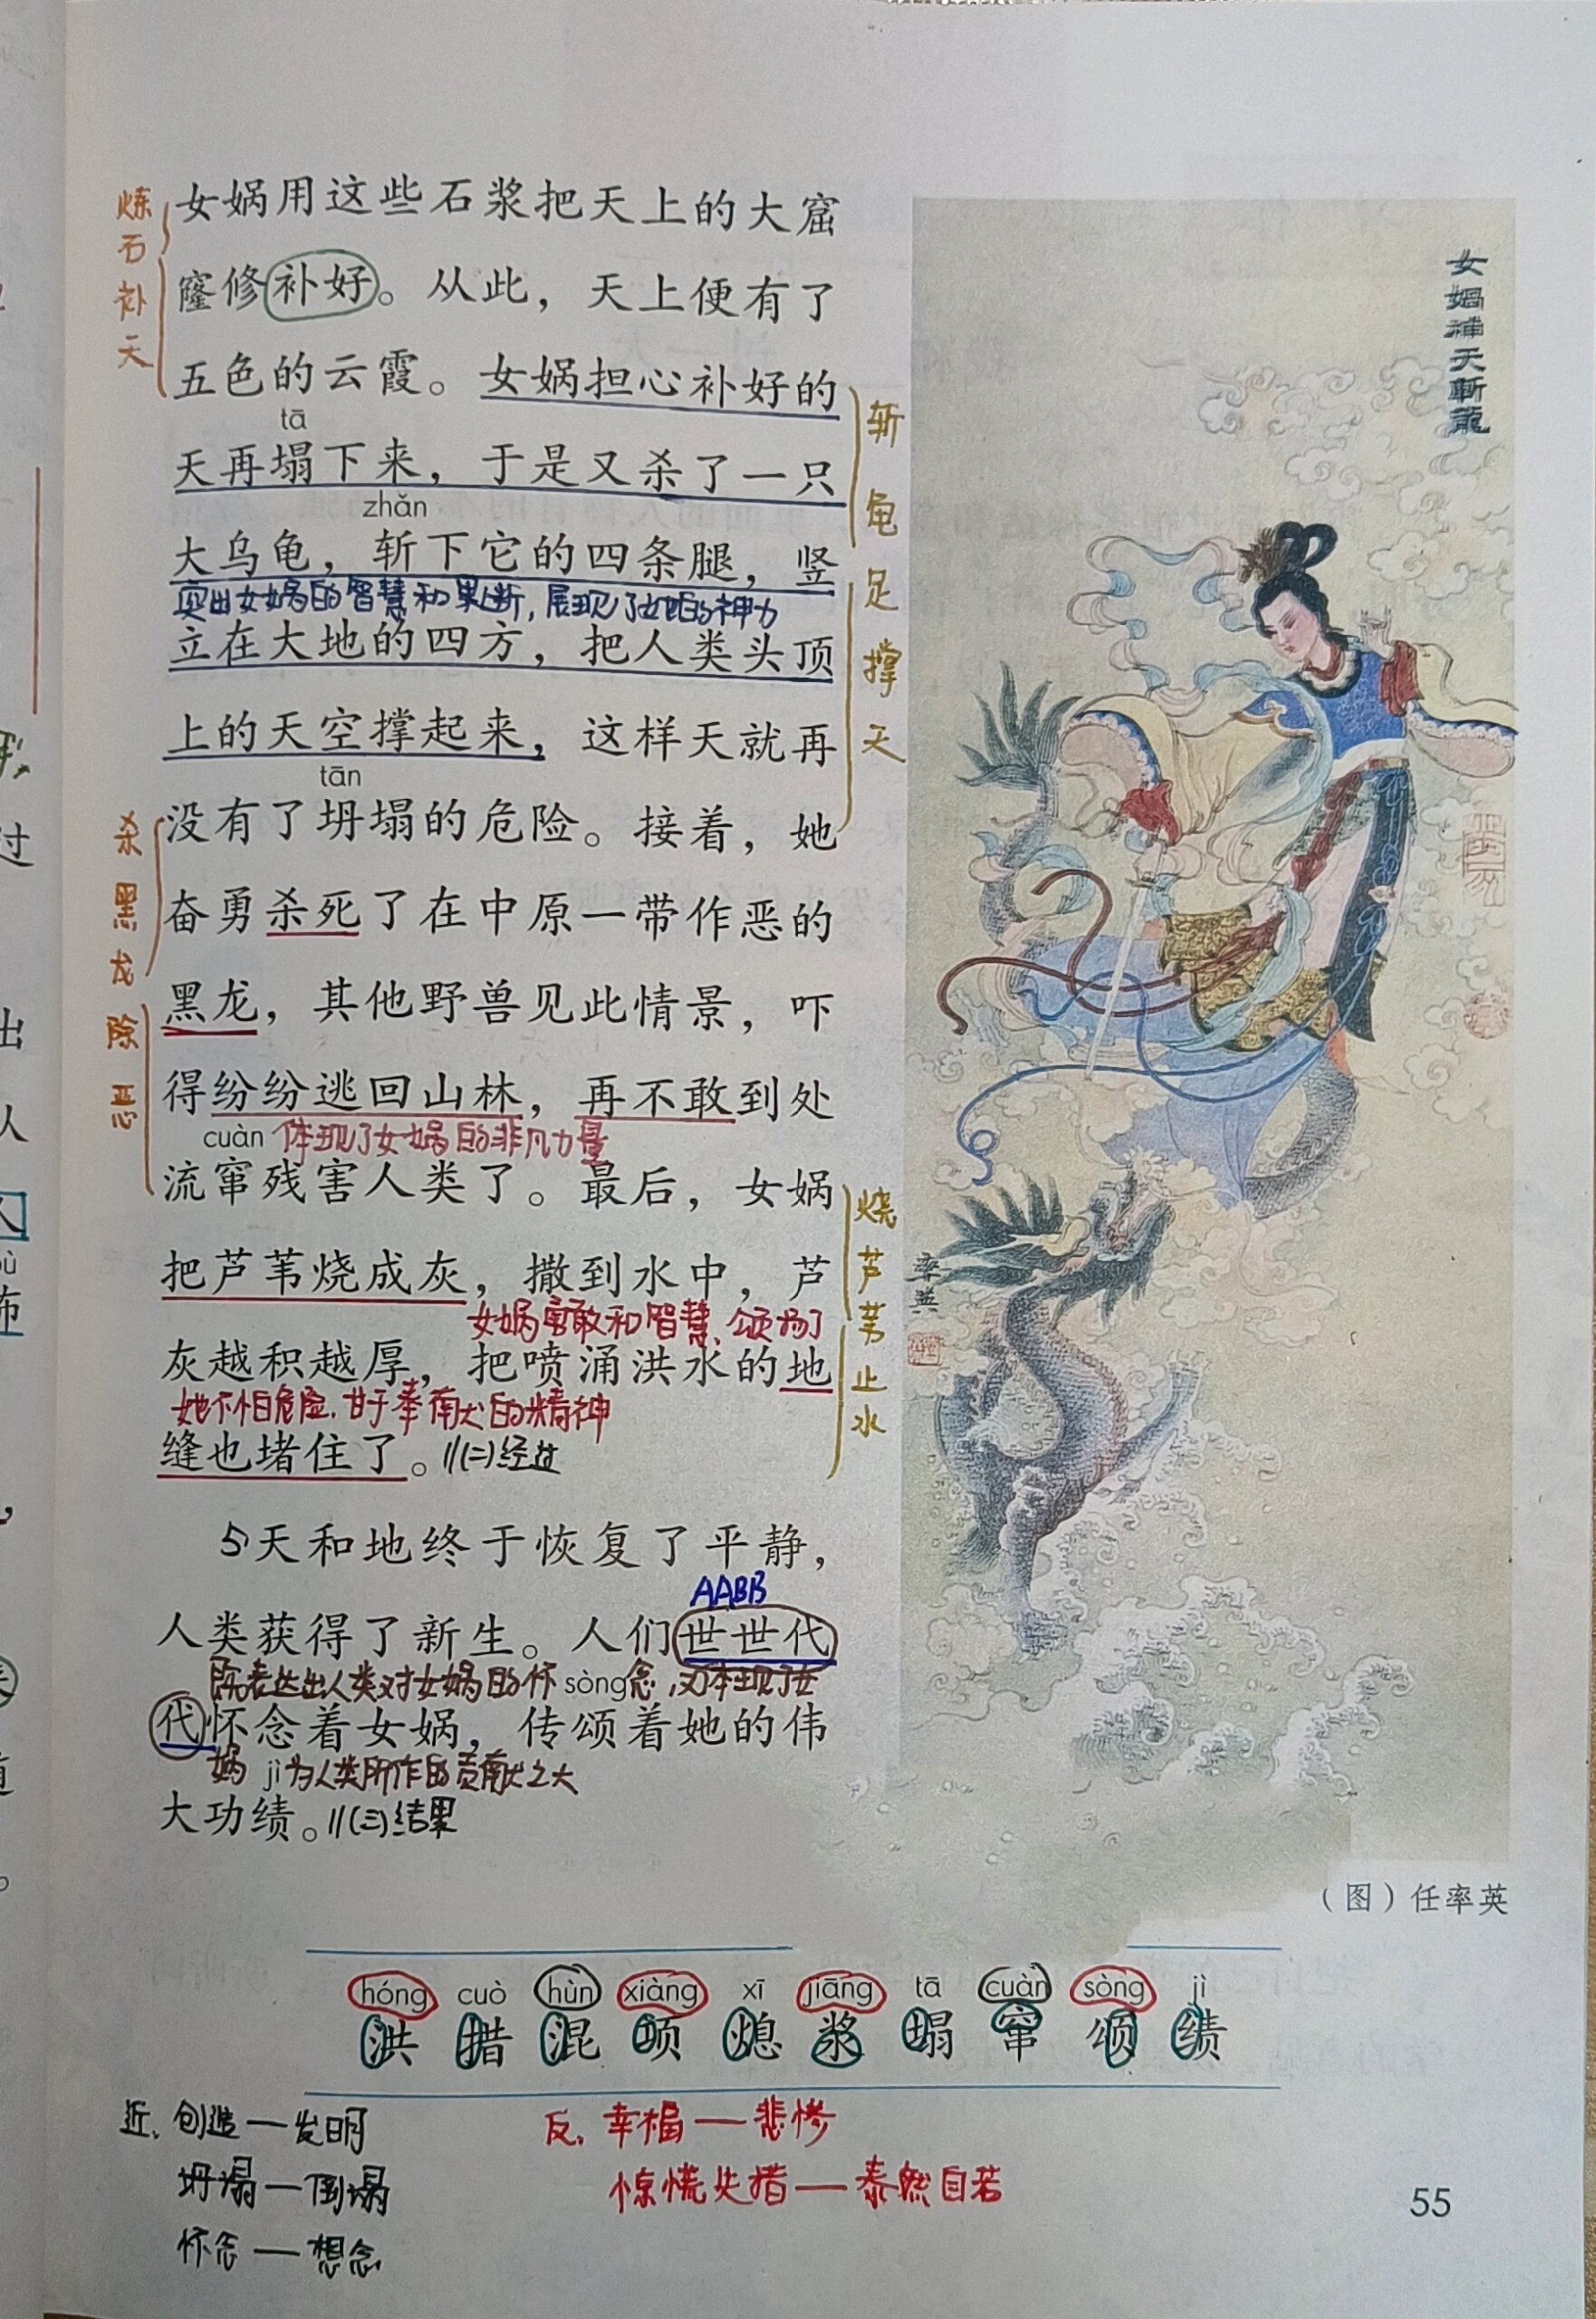 女娲用这些石浆把天上的大窟
窿修补好。从此，天上便有了
五色的云霞。女娲担心补好的
tā
天再塌下来，于是又杀了一只
zhǎn
大乌龟，斩下它的四条腿，竖
突出女娲的智慧和果断，展现了她的神力
立在大地的四方，把人类头顶
上的天空撑起来，这样天就再
tān
没有了坍塌的危险。接着，她
奋勇杀死了在中原一带作恶的
黑龙，其他野兽见此情景，吓
得纷纷逃回山林，再不敢到处
cuàn 体现了女娲的非凡力量
流窜残害人类了。最后，女娲
把芦苇烧成灰，撒到水中，芦
女娲勇敢和智慧，颂扬了
灰越积越厚，把喷涌洪水的地
她不怕危险，甘于奉献的精神
缝也堵住了。//(二)经过
5天和地终于恢复了平静，
AABB
人类获得了新生。人们世世代
既表达出人类对女娲的怀sòng念，又体现了女
代怀念着女娲，传颂着她的伟
娲 jì为人类所作的贡献之大
大功绩。//(三)结果
炼石补天
斩龟足撑天
杀黑龙除恶
烧芦苇止水
女媧補天斬龍
率英
（图）任率英
hóng cuò hùn xiàng xī jiāng tā cuàn sòng jì
洪 措 混 项 熄 浆 塌 窜 颂 绩
近、创造—发明
坍塌—倒塌
怀念—想念
反、幸福—悲惨
惊慌失措—泰然自若
55